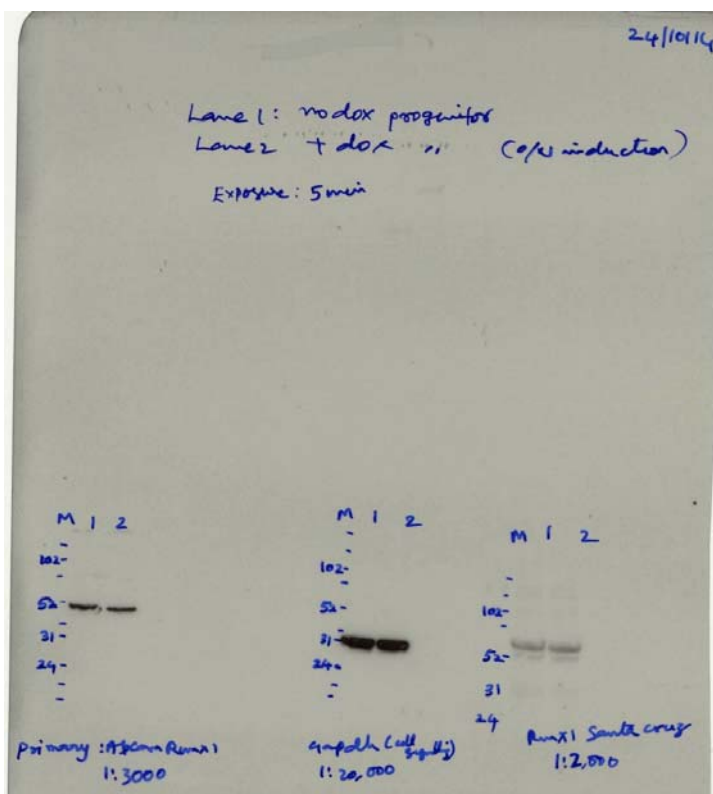 24/10/14
Lane 1: no dox progenitor
Lane 2 + dox " (o/n induction)
Exposure: 5 min
M 1 2
102-
52-
31-
24-
primary: Abcam Runx1
1:3000
M 1 2
102-
52-
31-
24-
gapdh (cell signalling)
1:20,000
M 1 2
102-
52-
31
24
Runx1 Santa cruz
1:2,000